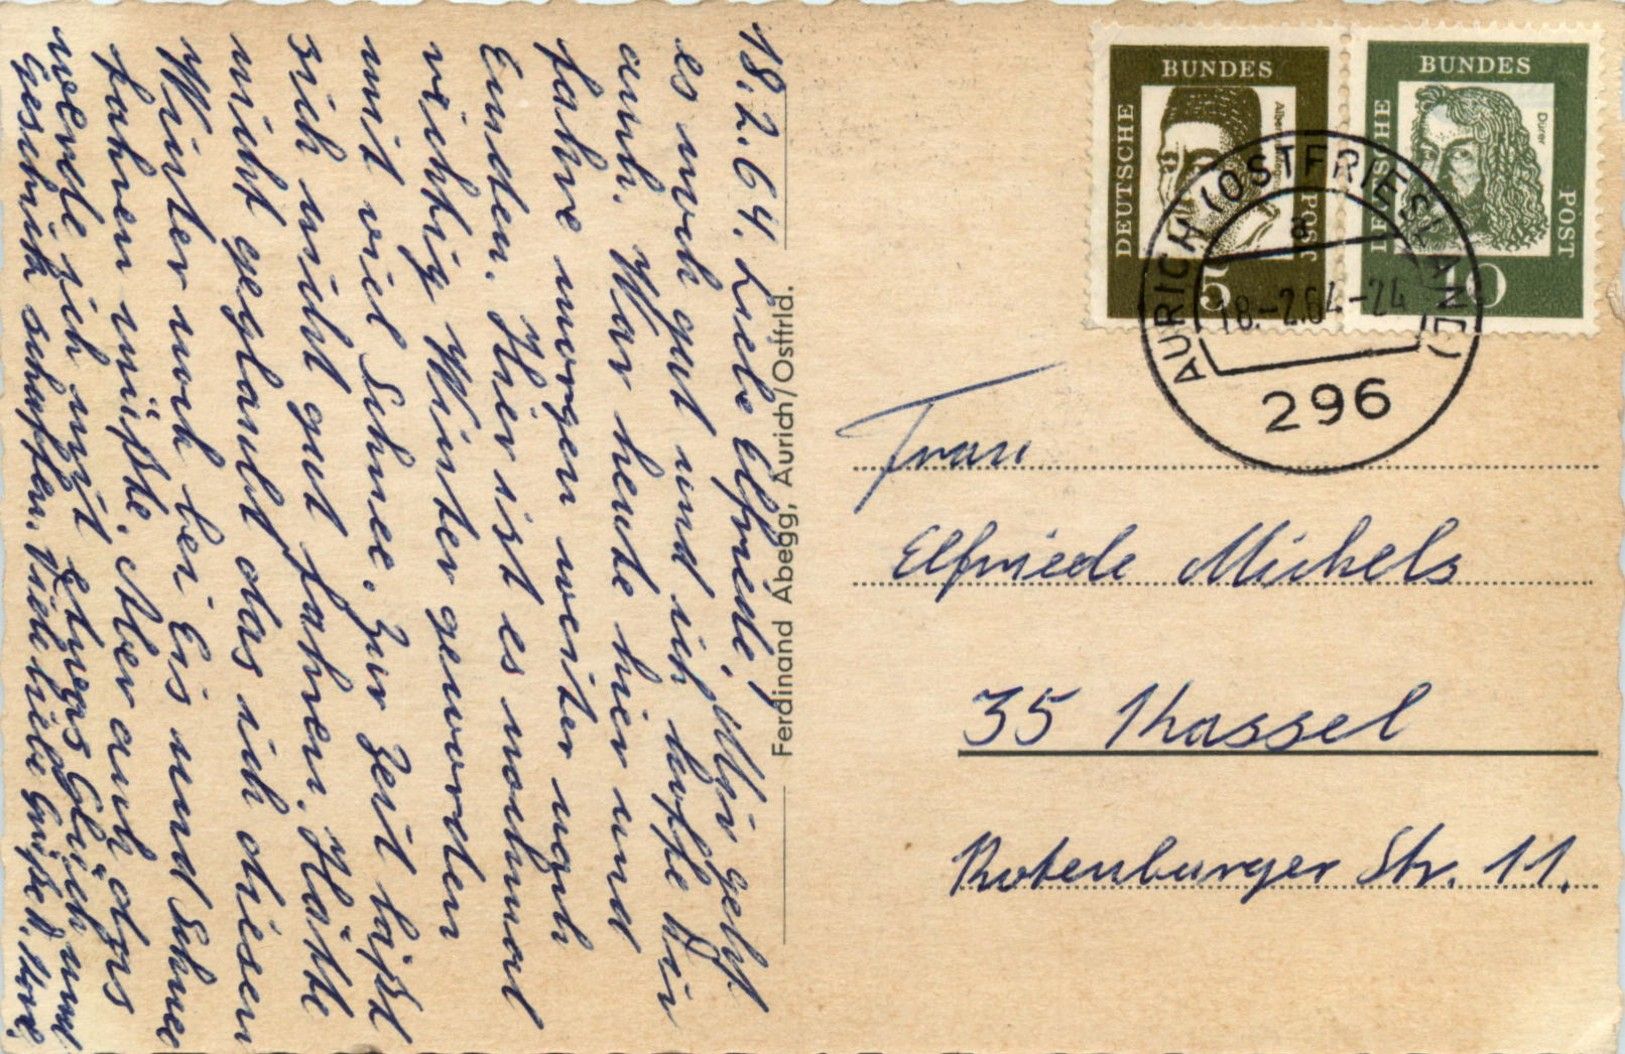 18.2.64. Liebe Elfriede! Mir geht
es noch gut und ich hoffe Dir
auch. War heute hier und
fahre morgen weiter nach
Emden. Hier ist es nochmal
richtig Winter geworden
mit viel Schnee. Zur Zeit läßt
sich nicht gut fahren. Hätte
nicht geglaubt das ich diesen
Winter noch bei Eis und Schnee
fahren müßte. Aber auch das
werde ich mit etwas Glück und
Geschick schaffen. Viele liebe Grüße
Ferdinand Abegg, Aurich/Ostfrld.
DEUTSCHE
BUNDES
POST
5
DEUTSCHE
BUNDES
POST
Dürer
10
AURICH (OSTFRIESLAND)
a
18.-2.64-24
296
Frau
Elfriede Michels
35 Kassel
Rotenburger Str. 11.